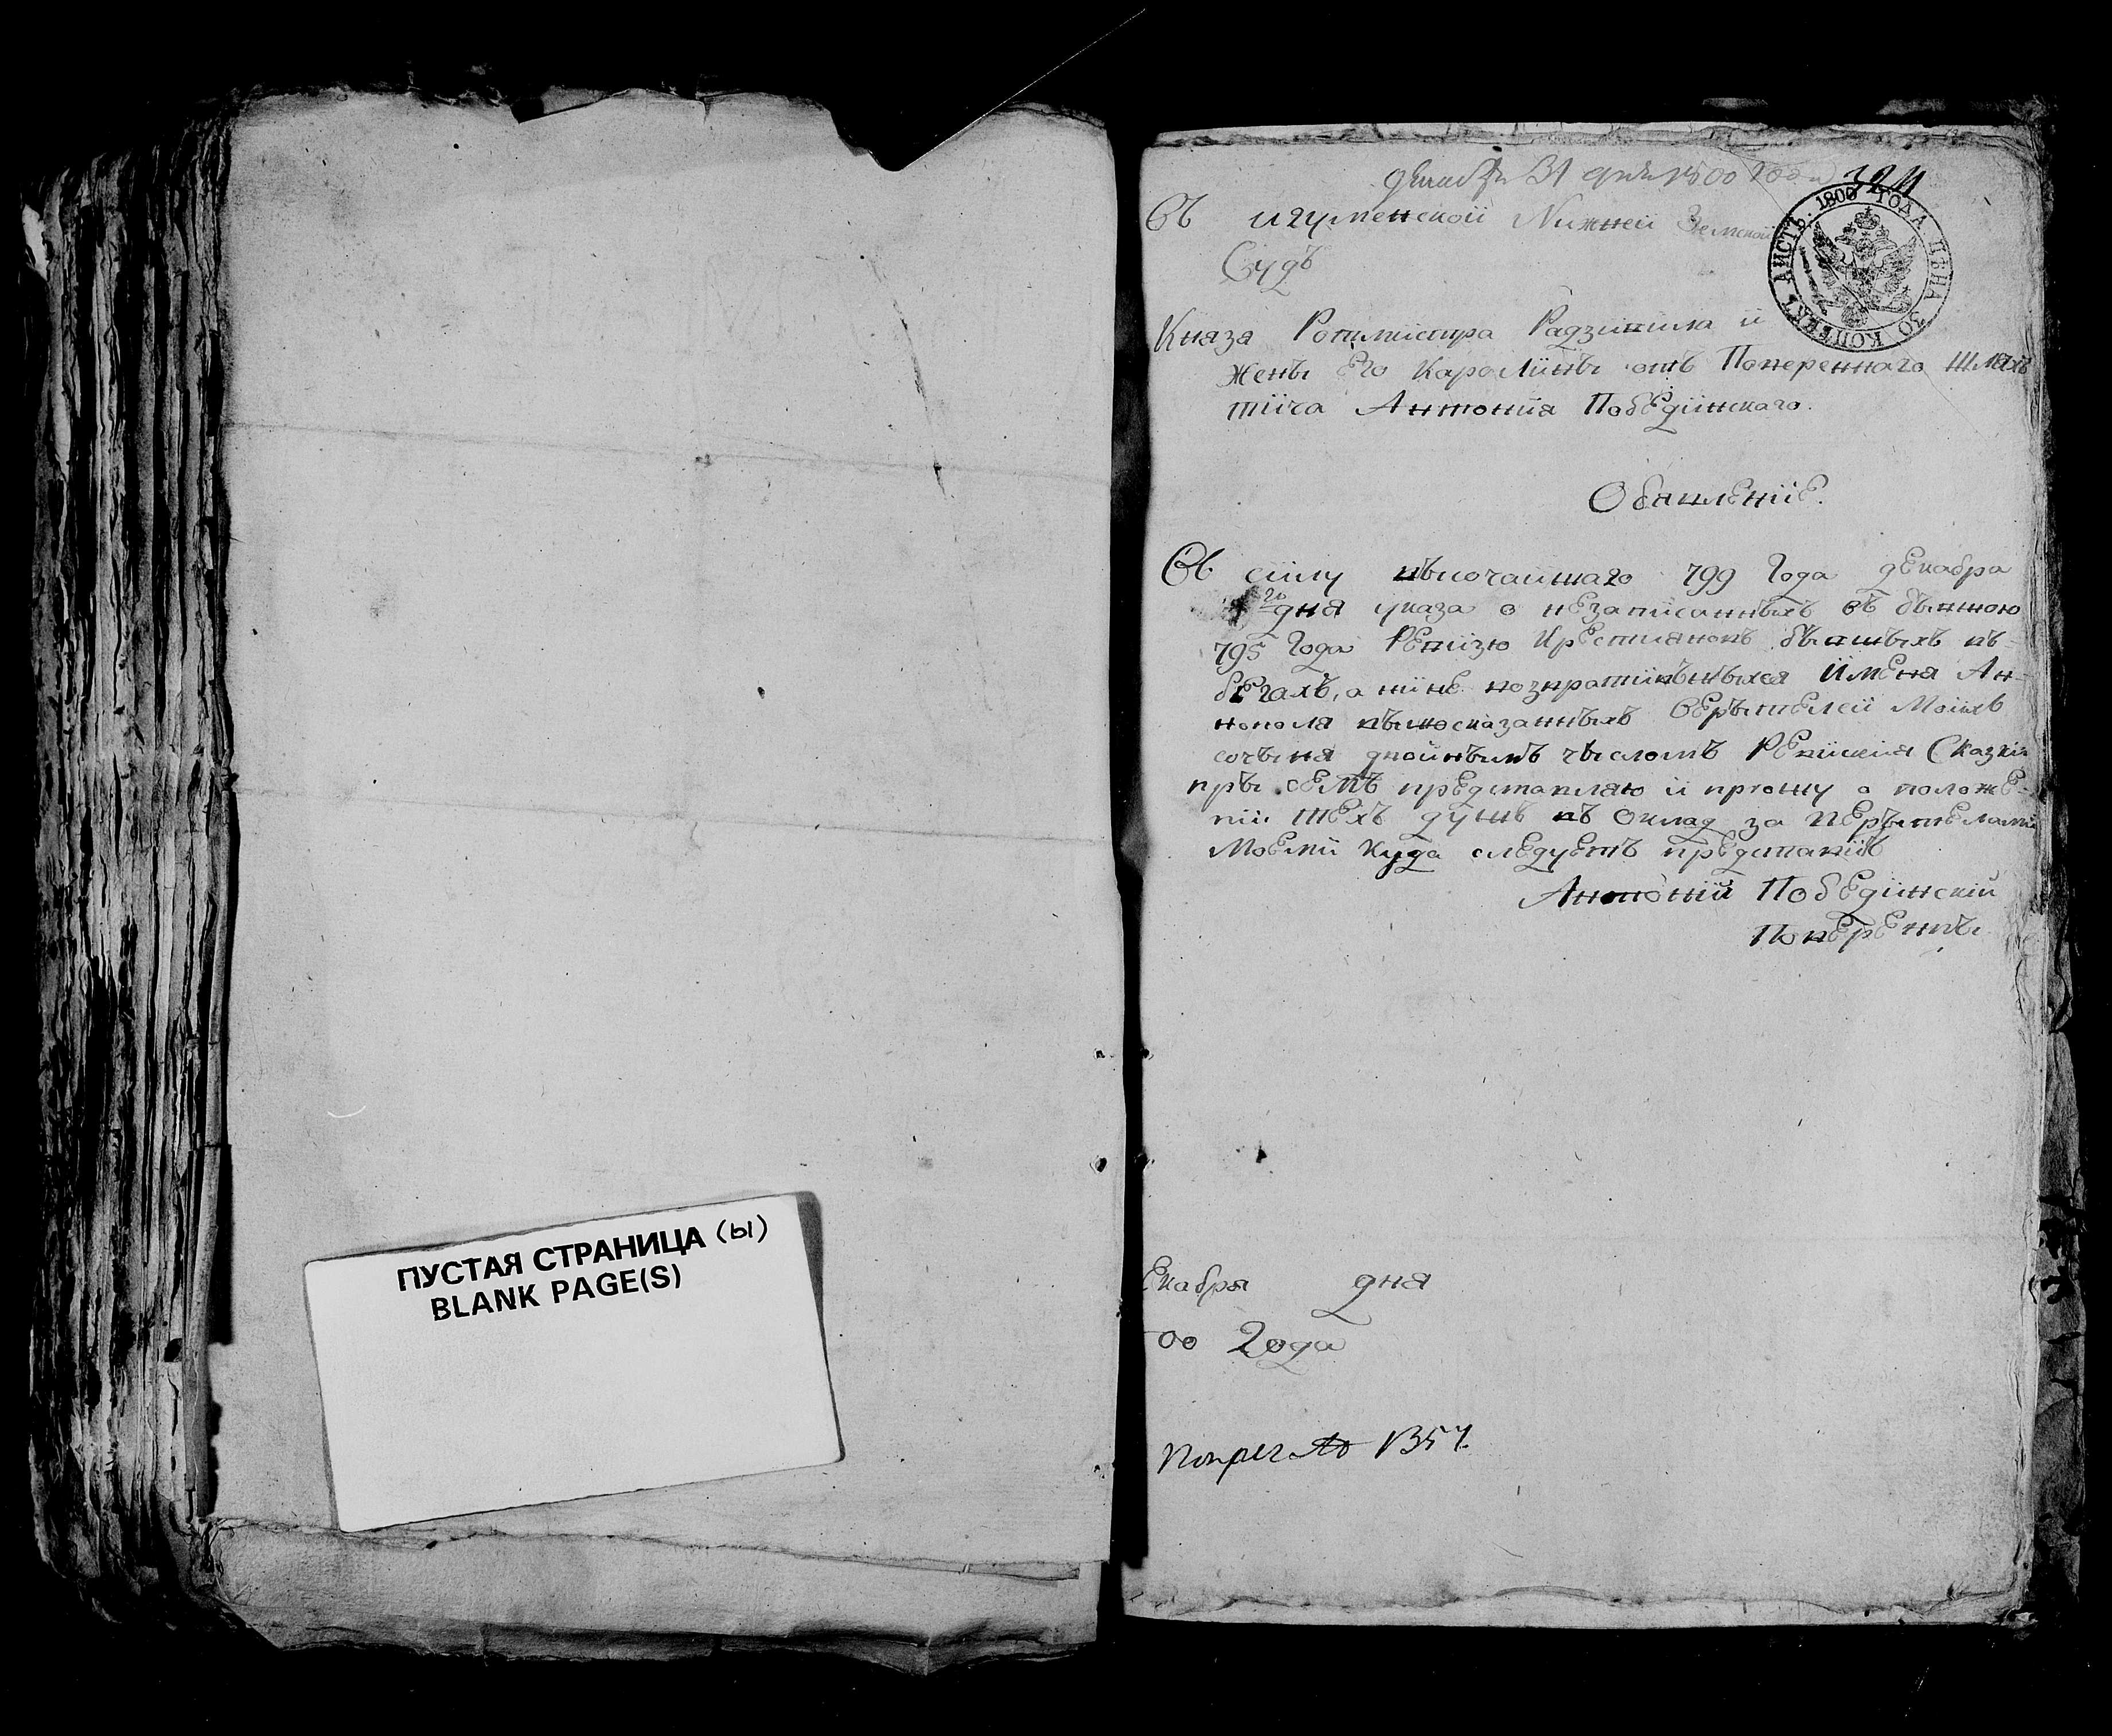 ПУСТАЯ СТРАНИЦА (ы)
BLANK PAGE(S)
31 дня 1800 года
ЛИСТЪ. 1800 ГОДА ЦѢНА 30 КОПѢЕКЪ
Въ игуменской Нижней Земской
Судъ
Княза Ротмистра Радзивила и
Жены Его Каролины отъ Поверенного Шлях
тича Антонія Победиинскаго.
Обявленіе.
Въ сиилу высочайшаго 799 Года декабра
20 дня указа о незаписанныхъ въ бывшою
795 Года Ревизю Крестиановъ бывшыхъ въ
бегахъ, а нинѣ возвратившыхся Имена Ан-
нополя вышосказанныхъ Верытелей Моихъ
сочыня двойнымъ чысломъ Ревиския Сказки
пры семъ представляю и прошу о положе-
нии техъ душъ въ оклад за верытелами
Моеми куда следуетъ представить
Антоній Победиинскій
Поверенны
Екабря дня
00 Года
1357